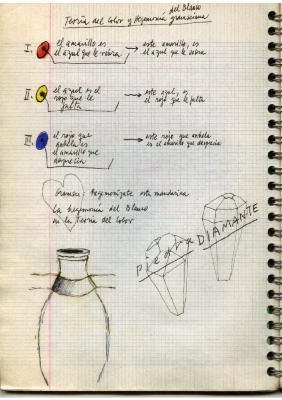 del Blanco
Teoría del Color y Hegemonía gramsciana
I.
el amarillo es
el azul que le sobra
este amarillo, es
el azul que le sobra
II.
el azul es el
rojo que le
falta
este azul, es
el rojo que le falta
III.
el rojo que
anhela es
el amarillo que
desprecia
este rojo que anhela
es el amarillo que desprecia
Gramsci: Hegemonízate esta mandarina
La hegemonía del Blanco
en la Teoría del Color
Piedra DIAMANTE